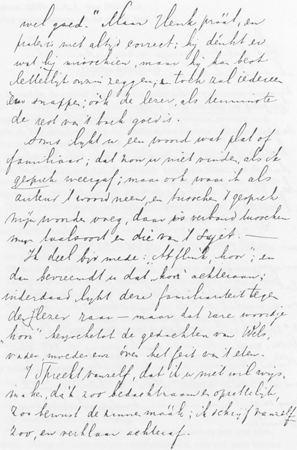 wel goed." Maar Henk praat, en
praten is niet altijd correct; hij denkt er
wat bij misschien, maar hij kan best
letterlijk onzin zeggen, en toch zal iedereen
'm snappen; óók de lezer, als tenminste
de rest van 't boek goed is.
Soms lijkt u een woord wat plat of
familiaar; dat zou u niet vinden, als ik
gesprek weergaf; maar ook waar ik als
auteur 't woord neem, en tusschen 't gesprek
mijn woorden voeg, daar is verband tusschen
mijn taalsoort en die van 't sujet.—
Ik deel bijv. mede: "Afflink, hoor"; en
dan bevreemdt u dat "hoor" achteraan;
inderdaad lijkt deze familiariteit tegen
de lezer raar — maar dat rare woordje
"hoor" de gedachten van Wels,
vader, moeder enz. over het feit van 't eten.
't Spreekt vanzelf, dat ik u niet wil wijs
maken, dat ik zoo bedachtzaam en opzettelijk,
zoo bewust de zinnen maak; ik schrijf vanzelf
zoo, en verklaar achteraf.